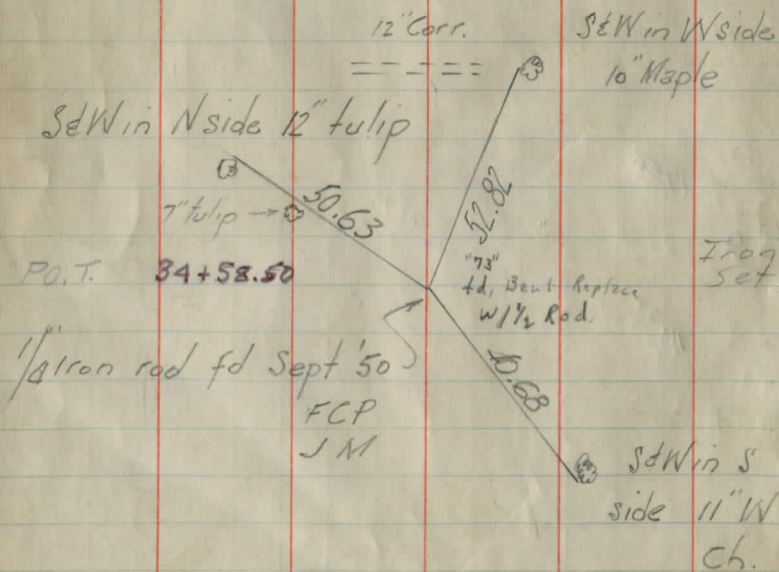 12" Corr.
S&W in W side
10" Maple
S&W in N side 12" tulip
7" tulip →
50.63
52.82
P.O.T. 34+58.50
"73"
fd, Bent Replace
W/ 1/2 Rod.
Iron
Set
1/4" Iron rod fd Sept '50
FCP
JM
10.68
S&W in S
side 11" W
Ch.